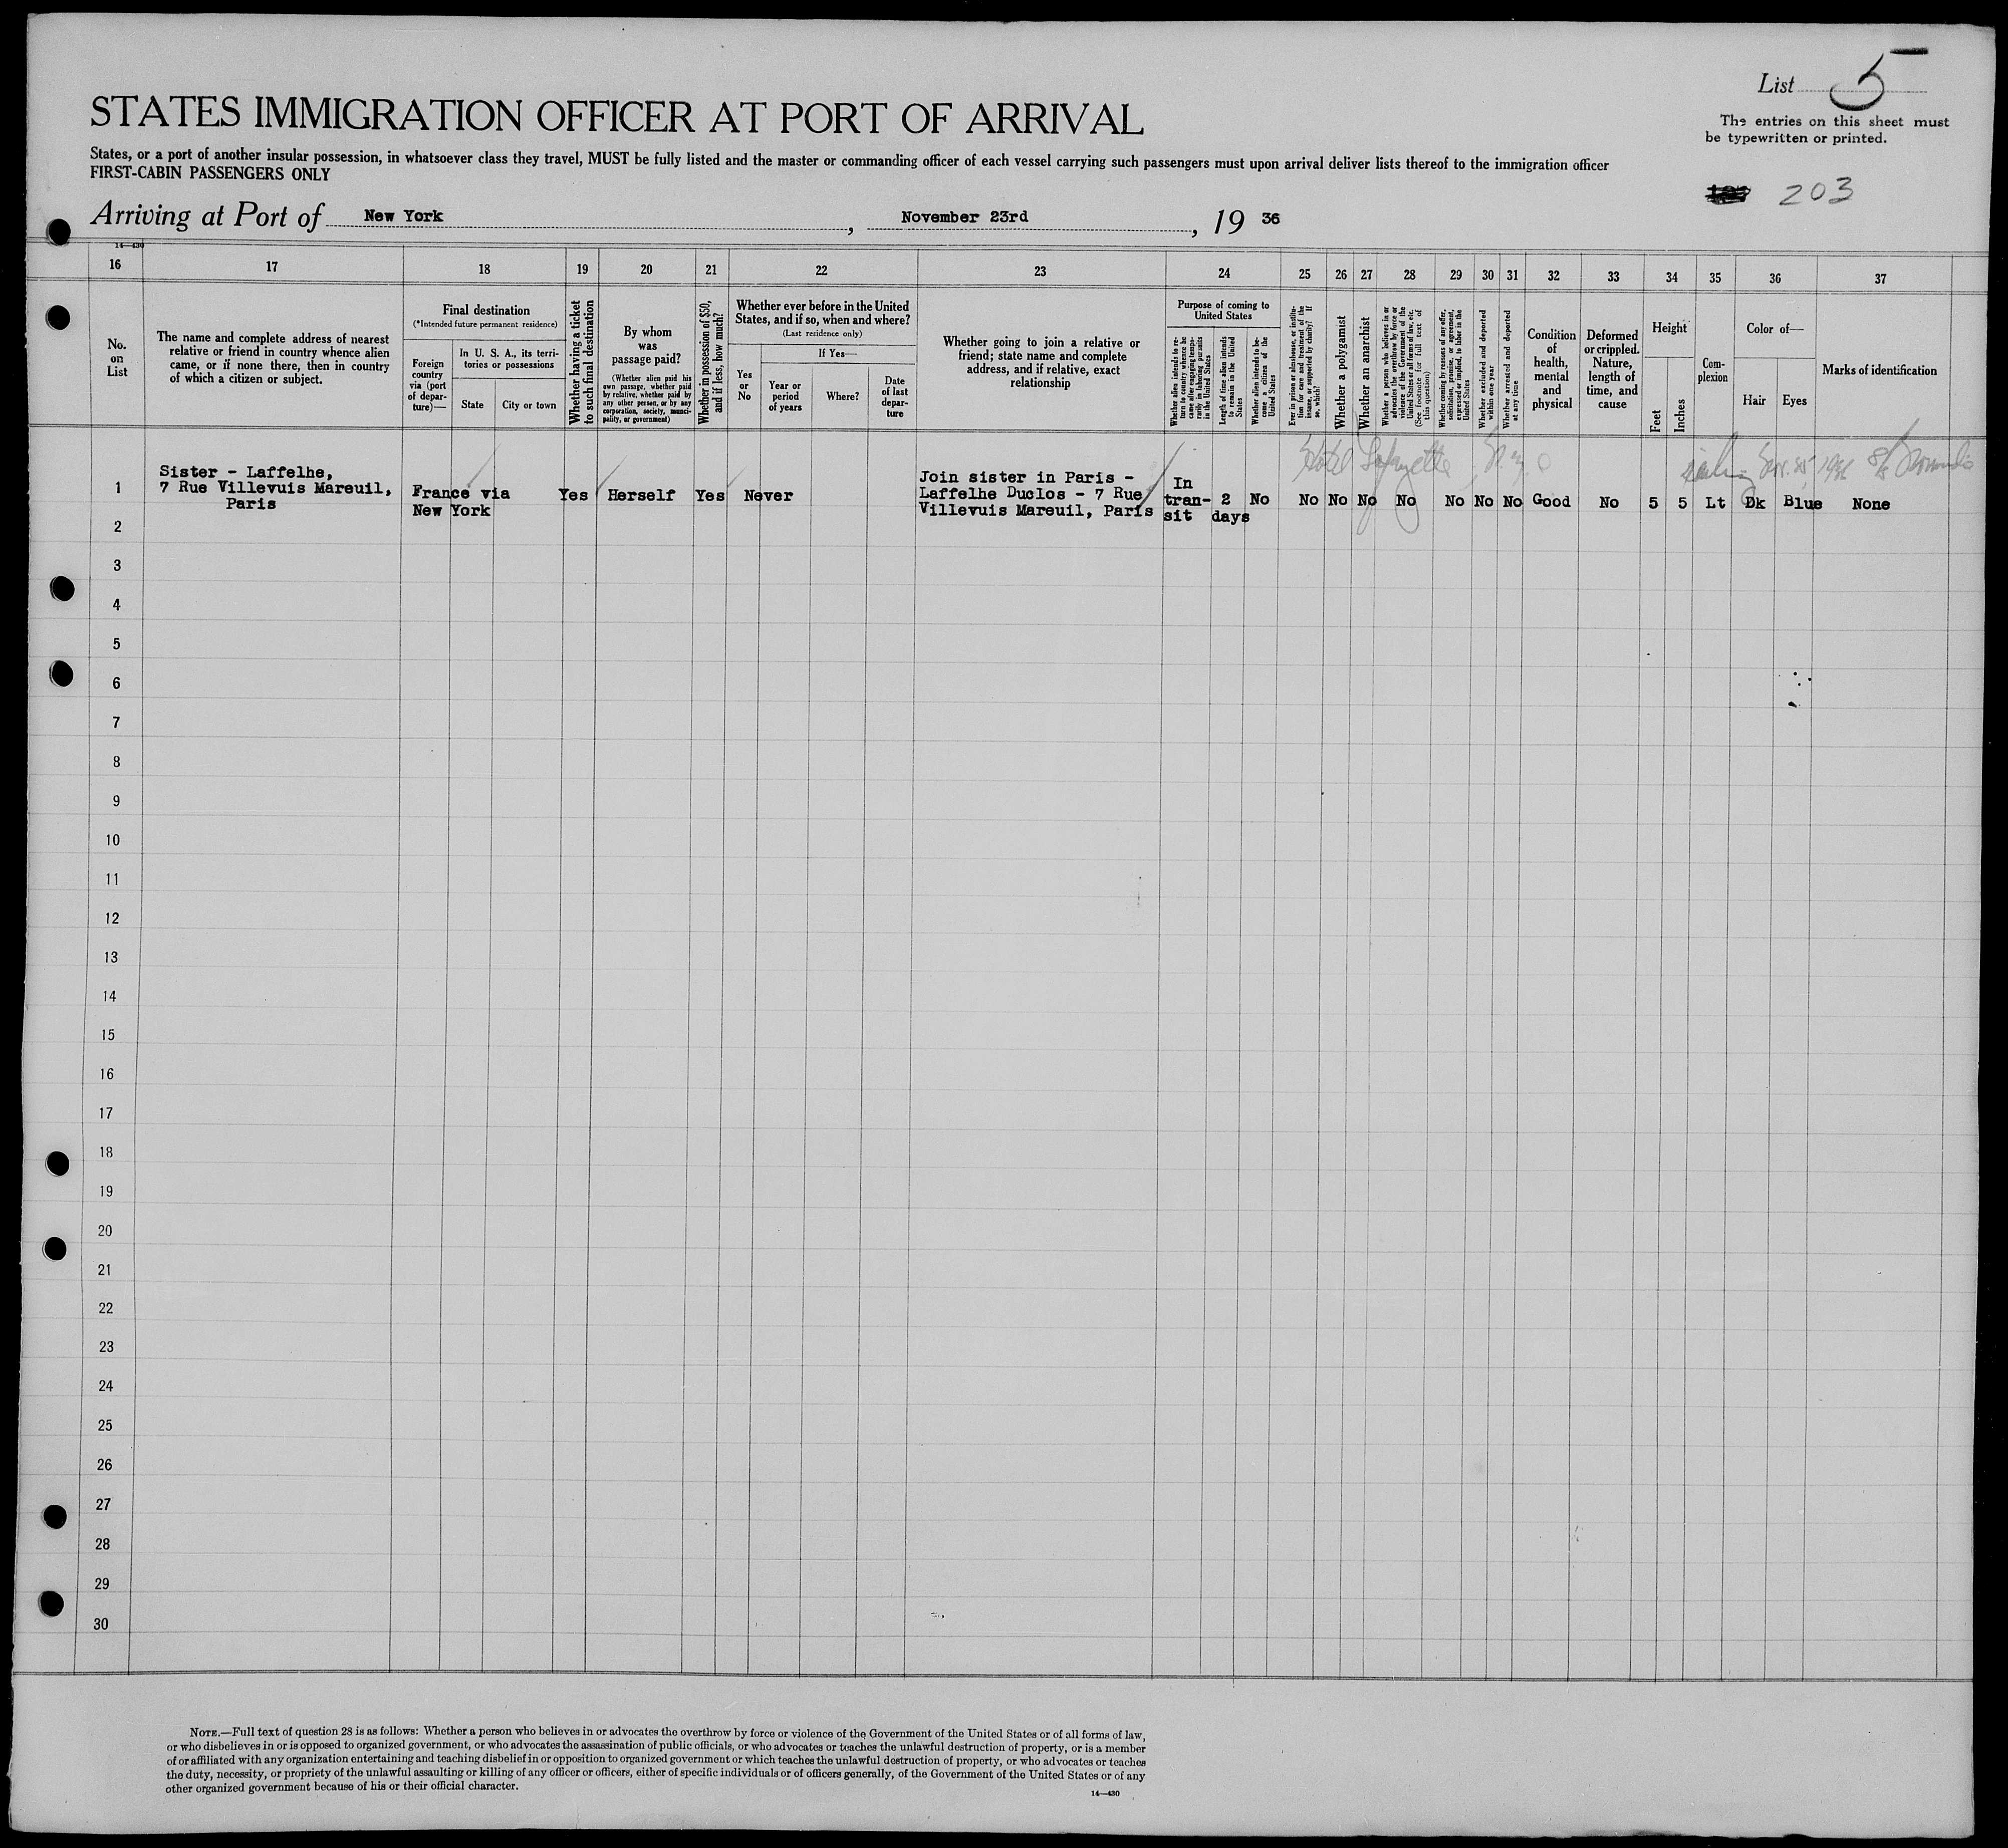 List 5
STATES IMMIGRATION OFFICER AT PORT OF ARRIVAL
The entries on this sheet must
be typewritten or printed.
States, or a port of another insular possession, in whatsoever class they travel, MUST be fully listed and the master or commanding officer of each vessel carrying such passengers must upon arrival deliver lists thereof to the immigration officer
FIRST-CABIN PASSENGERS ONLY
203
Arriving at Port of New York, November 23rd, 19 36
14—430
16 17 18 19 20 21 22 23 24 25 26 27 28 29 30 31 32 33 34 35 36 37
No.
on
List
The name and complete address of nearest
relative or friend in country whence alien
came, or if none there, then in country
of which a citizen or subject.
Final destination
(*Intended future permanent residence)
Foreign
country
via (port
of depar-
ture)—
In U. S. A., its terri-
tories or possessions
State
City or town
Whether having a ticket
to such final destination
By whom
was
passage paid?
(Whether alien paid his
own passage, whether paid
by relative, whether paid by
any other person, or by any
corporation, society, munici-
pality, or government)
Whether in possession of $50,
and if less, how much?
Whether ever before in the United
States, and if so, when and where?
(Last residence only)
Yes
or
No
If Yes—
Year or
period
of years
Where?
Date
of last
depar-
ture
Whether going to join a relative or
friend; state name and complete
address, and if relative, exact
relationship
Purpose of coming to
United States
Whether alien intends to re-
turn to country whence he
came after engaging tempo-
rarily in laboring pursuits
in the United States
Length of time alien intends
to remain in the United
States
Whether alien intends to be-
come a citizen of the
United States
Ever in prison or almshouse, or institu-
tion for care and treatment of the
insane, or supported by charity? If
so, which?
Whether a polygamist
Whether an anarchist
Whether a person who believes in or
advocates the overthrow by force or
violence of the Government of the
United States or all forms of law, etc.
(See footnote for full text of
this question)
Whether coming by reasons of any offer,
solicitation, promise, or agreement,
expressed or implied, to labor in the
United States
Whether excluded and deported
within one year
Whether arrested and deported
at any time
Condition
of
health,
mental
and
physical
Deformed
or crippled.
Nature,
length of
time, and
cause
Height
Feet
Inches
Com-
plexion
Color of—
Hair
Eyes
Marks of identification
Hotel Lafayette, N.Y.C
Nov. 25, 1936 S/S
1
Sister - Laffelhe,
7 Rue Villevuis Mareuil,
Paris
France via
New York
Yes
Herself
Yes
Never
Join sister in Paris -
Laffelhe Duclos - 7 Rue
Villevuis Mareuil, Paris
In
tran-
sit
2
days
No
No
No
No
No
No
No
No
Good
No
5
5
Lt
Dk
Blue
None
2
3
4
5
6
7
8
9
10
11
12
13
14
15
16
17
18
19
20
21
22
23
24
25
26
27
28
29
30
NOTE.—Full text of question 28 is as follows: Whether a person who believes in or advocates the overthrow by force or violence of the Government of the United States or of all forms of law,
or who disbelieves in or is opposed to organized government, or who advocates the assassination of public officials, or who advocates or teaches the unlawful destruction of property, or is a member
of or affiliated with any organization entertaining and teaching disbelief in or opposition to organized government or which teaches the unlawful destruction of property, or who advocates or teaches
the duty, necessity, or propriety of the unlawful assaulting or killing of any officer or officers, either of specific individuals or of officers generally, of the Government of the United States or of any
other organized government because of his or their official character.
14—430